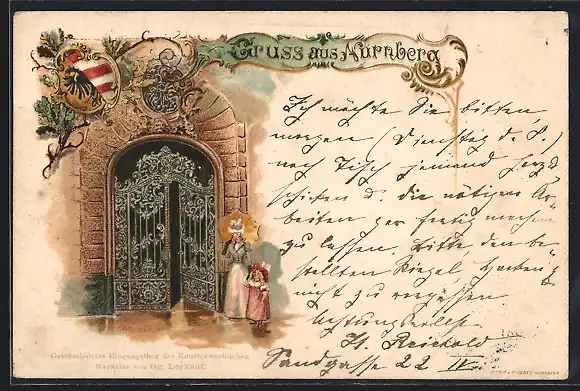 Gruss aus Nürnberg
Ich möchte Sie bitten,
morgen (Dienstag d. 8.)
nach Tisch jemand
schicken d. die nötigen Ar-
beiten gar fertig machen
zu lassen, bitte, den be-
stellten Riegel,
nicht zu vergessen
Achtungsvollst
Reichold
Sandgasse 22 IV.
Geschmiedetes Eingangsthor des Kunstgewerblichen
Magazins von Gg. Leykauf.